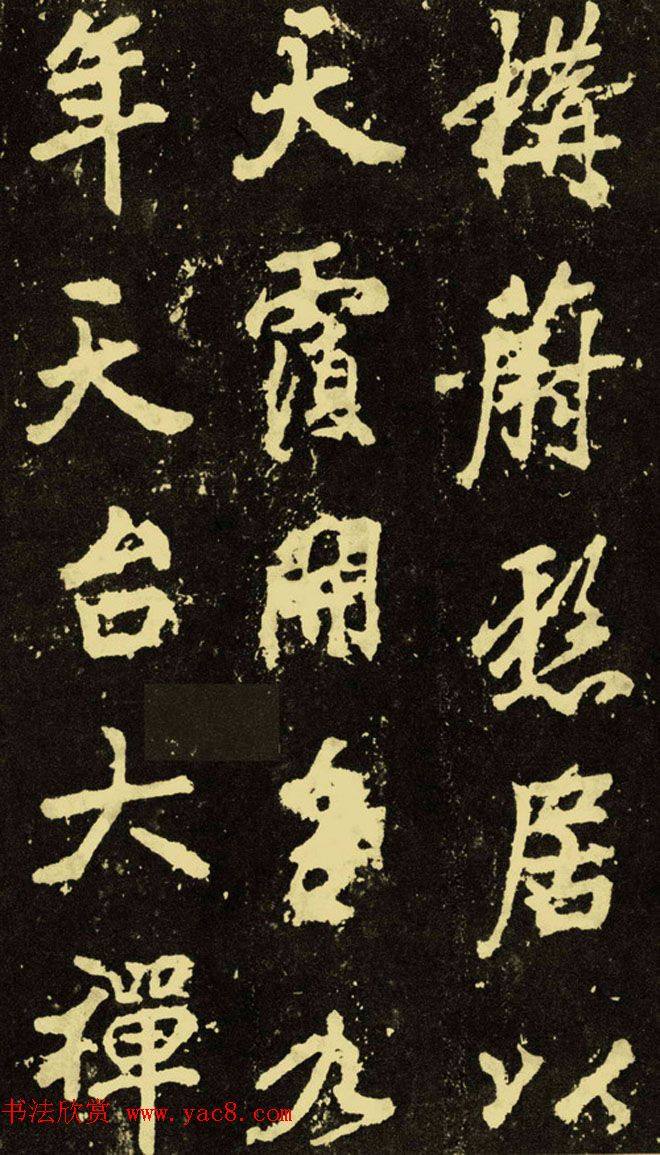 構蔚居以
天開皇九
年天台大禪
书法欣赏 www.yac8.com